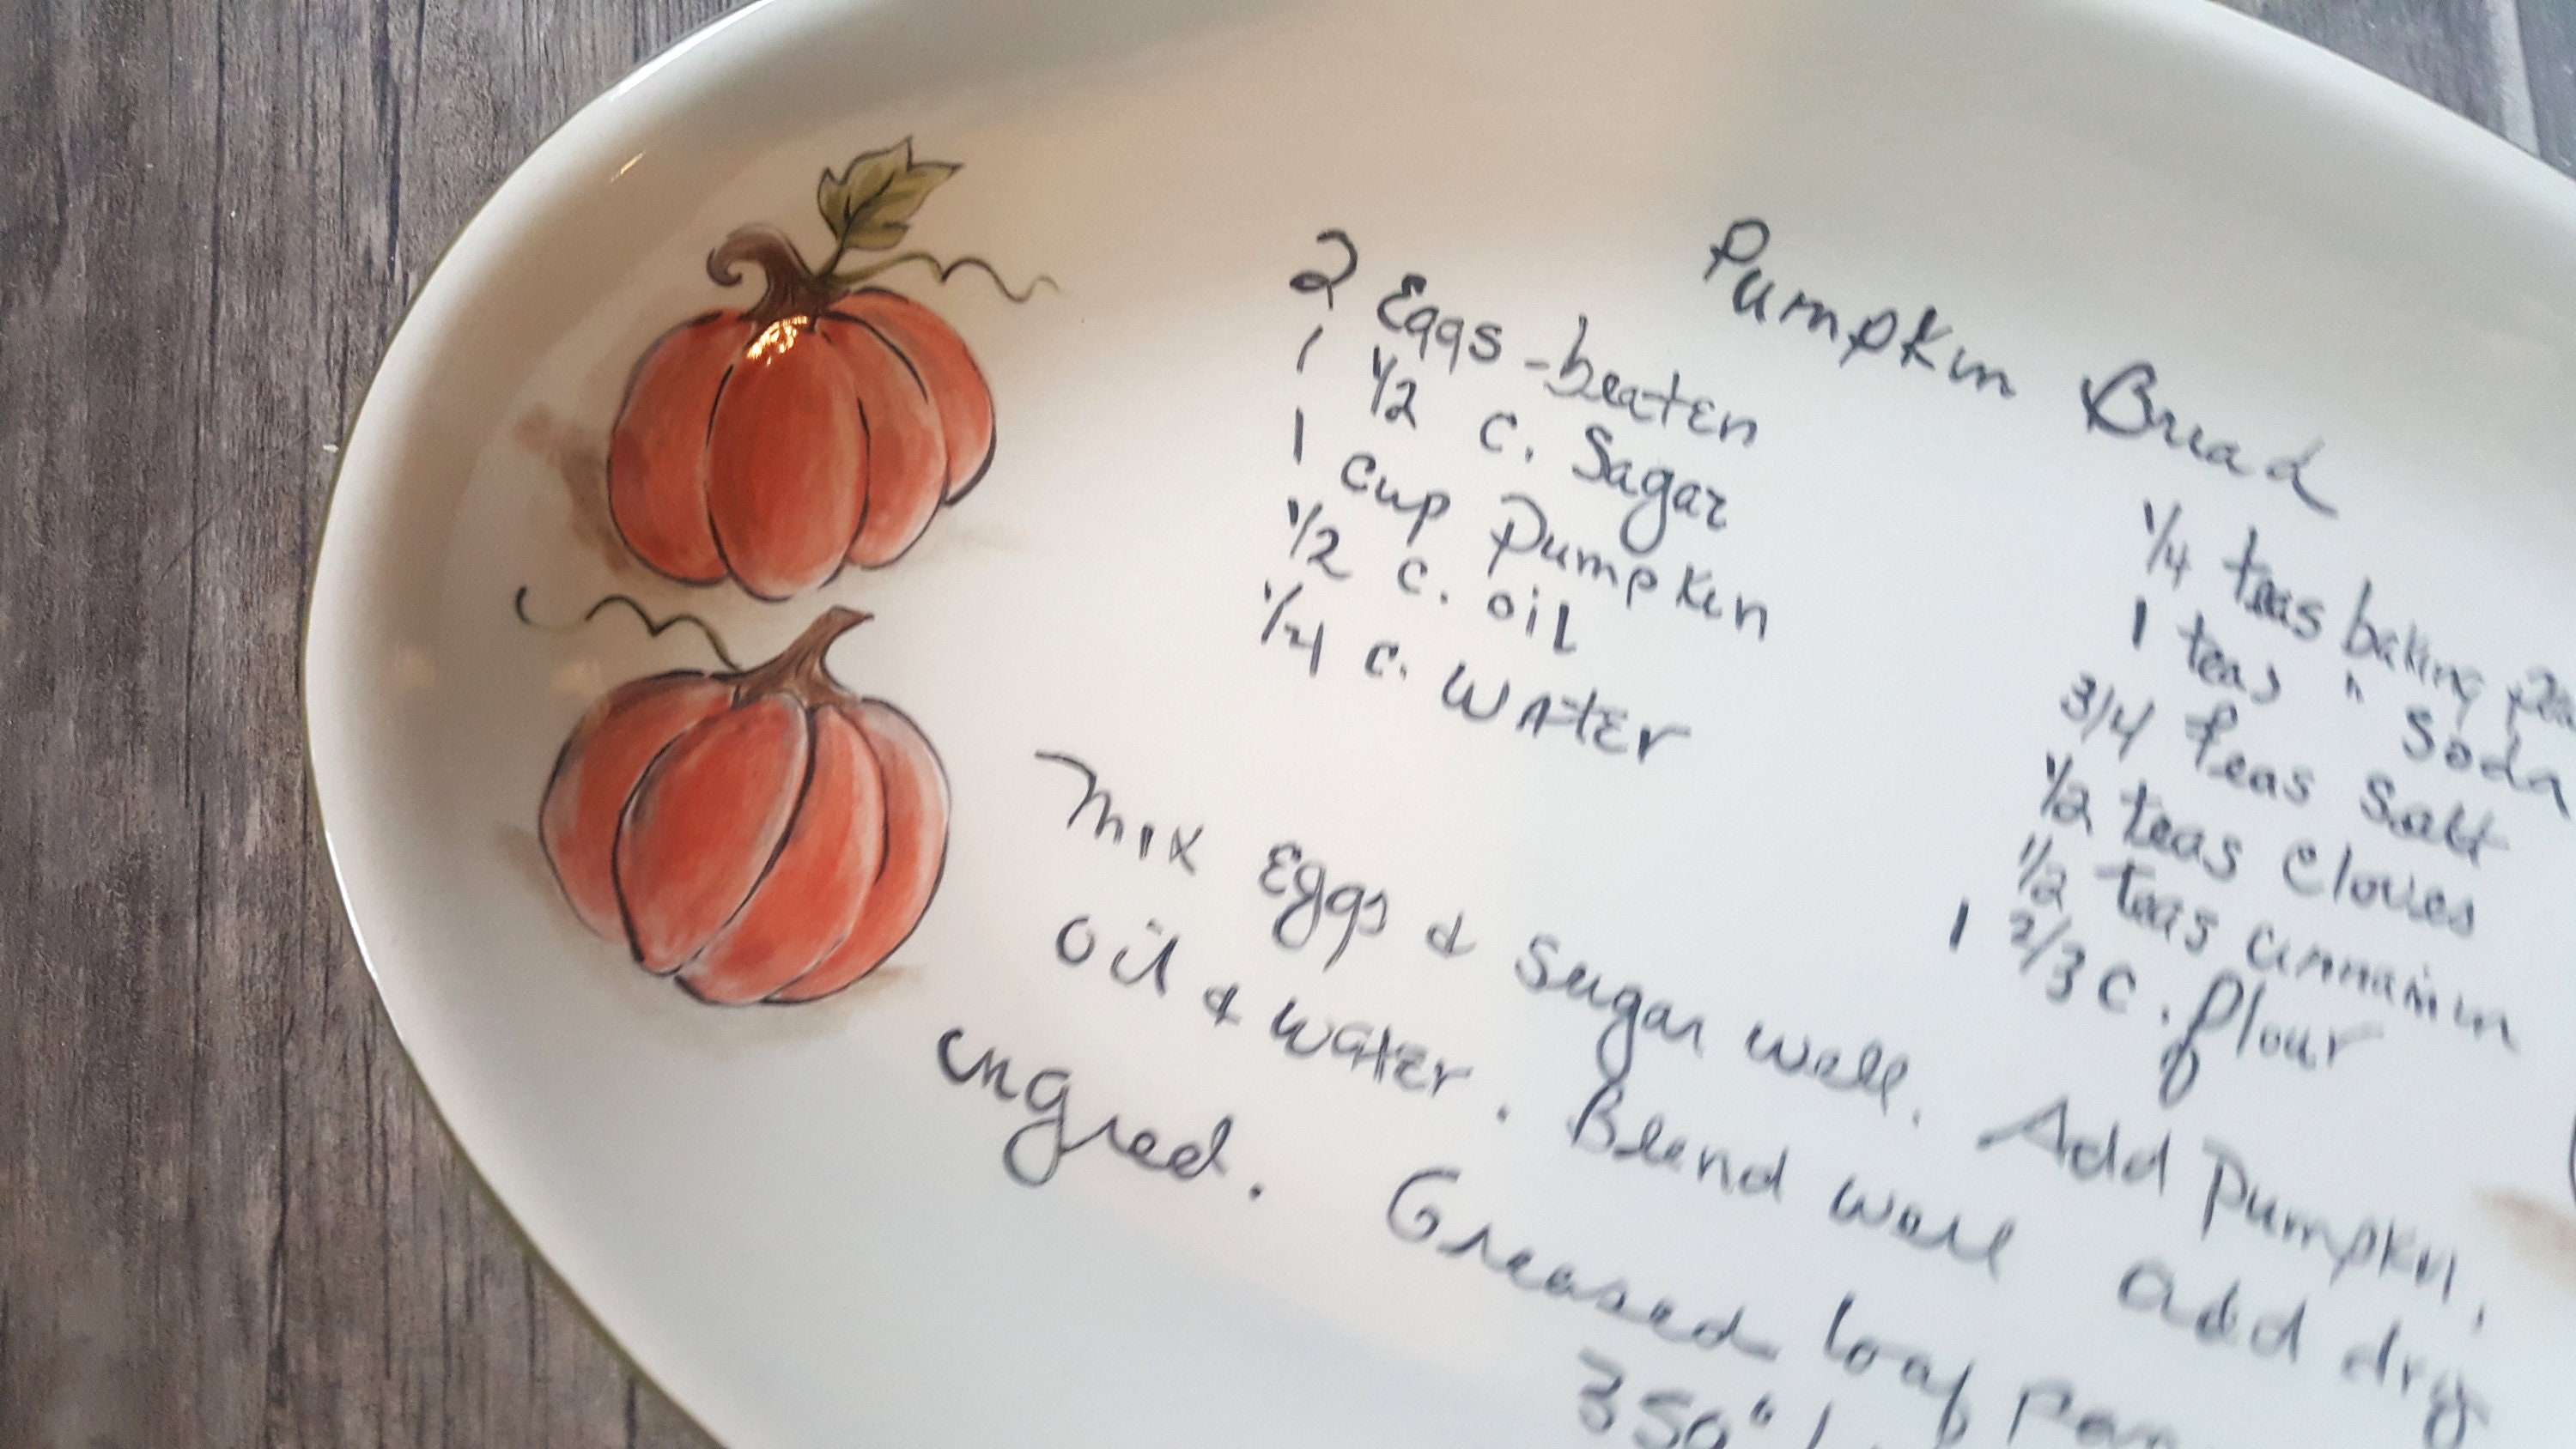 Pumpkin Bread
2 Eggs - beaten
1 1/2 c. Sugar
1 cup Pumpkin
1/2 c. oil
1/4 c. water
1/4 teas baking
1 teas " Soda
3/4 teas Salt
1/2 teas cloves
1/2 teas cinnamin
1 2/3 c. flour
Mix Eggs & Sugar well. Add Pumpkin,
oil & water. Blend well add dry
ingred. Greased loaf
350°